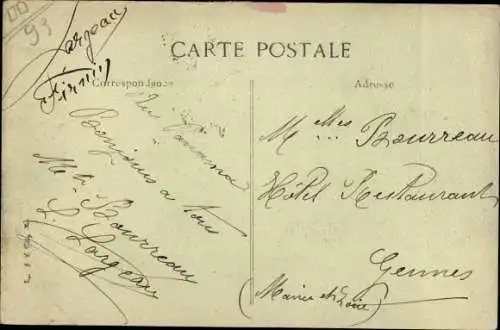 93
Largeau
Firmin
CARTE POSTALE
Correspondance
Adresse
Bonjour a tous
Mlle Bourreau
L. Largeau
Melles Bourreau
Hôtel Restaurant
Gennes
(Maine et Loire)